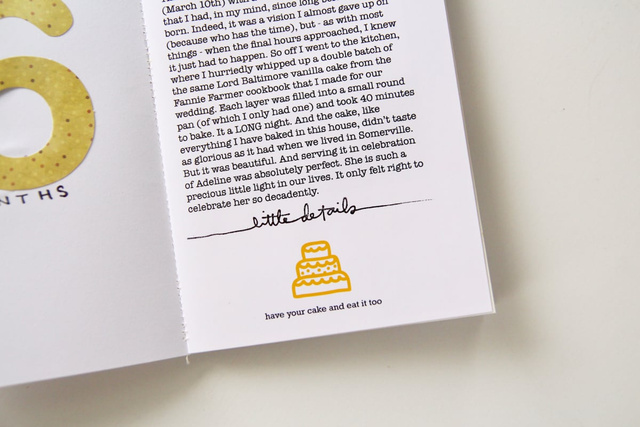 6
NTHS
(March 10th) with
that I had, in my mind, since long be
born. Indeed, it was a vision I almost gave up on
(because who has the time), but - as with most
things - when the final hours approached, I knew
it just had to happen. So off I went to the kitchen,
where I hurriedly whipped up a double batch of
the same Lord Baltimore vanilla cake from the
Fannie Farmer cookbook that I made for our
wedding. Each layer was filled into a small round
pan (of which I only had one) and took 40 minutes
to bake. It a LONG night. And the cake, like
everything I have baked in this house, didn't taste
as glorious as it had when we lived in Somerville.
But it was beautiful. And serving it in celebration
of Adeline was absolutely perfect. She is such a
precious little light in our lives. It only felt right to
celebrate her so decadently.
little details
have your cake and eat it too